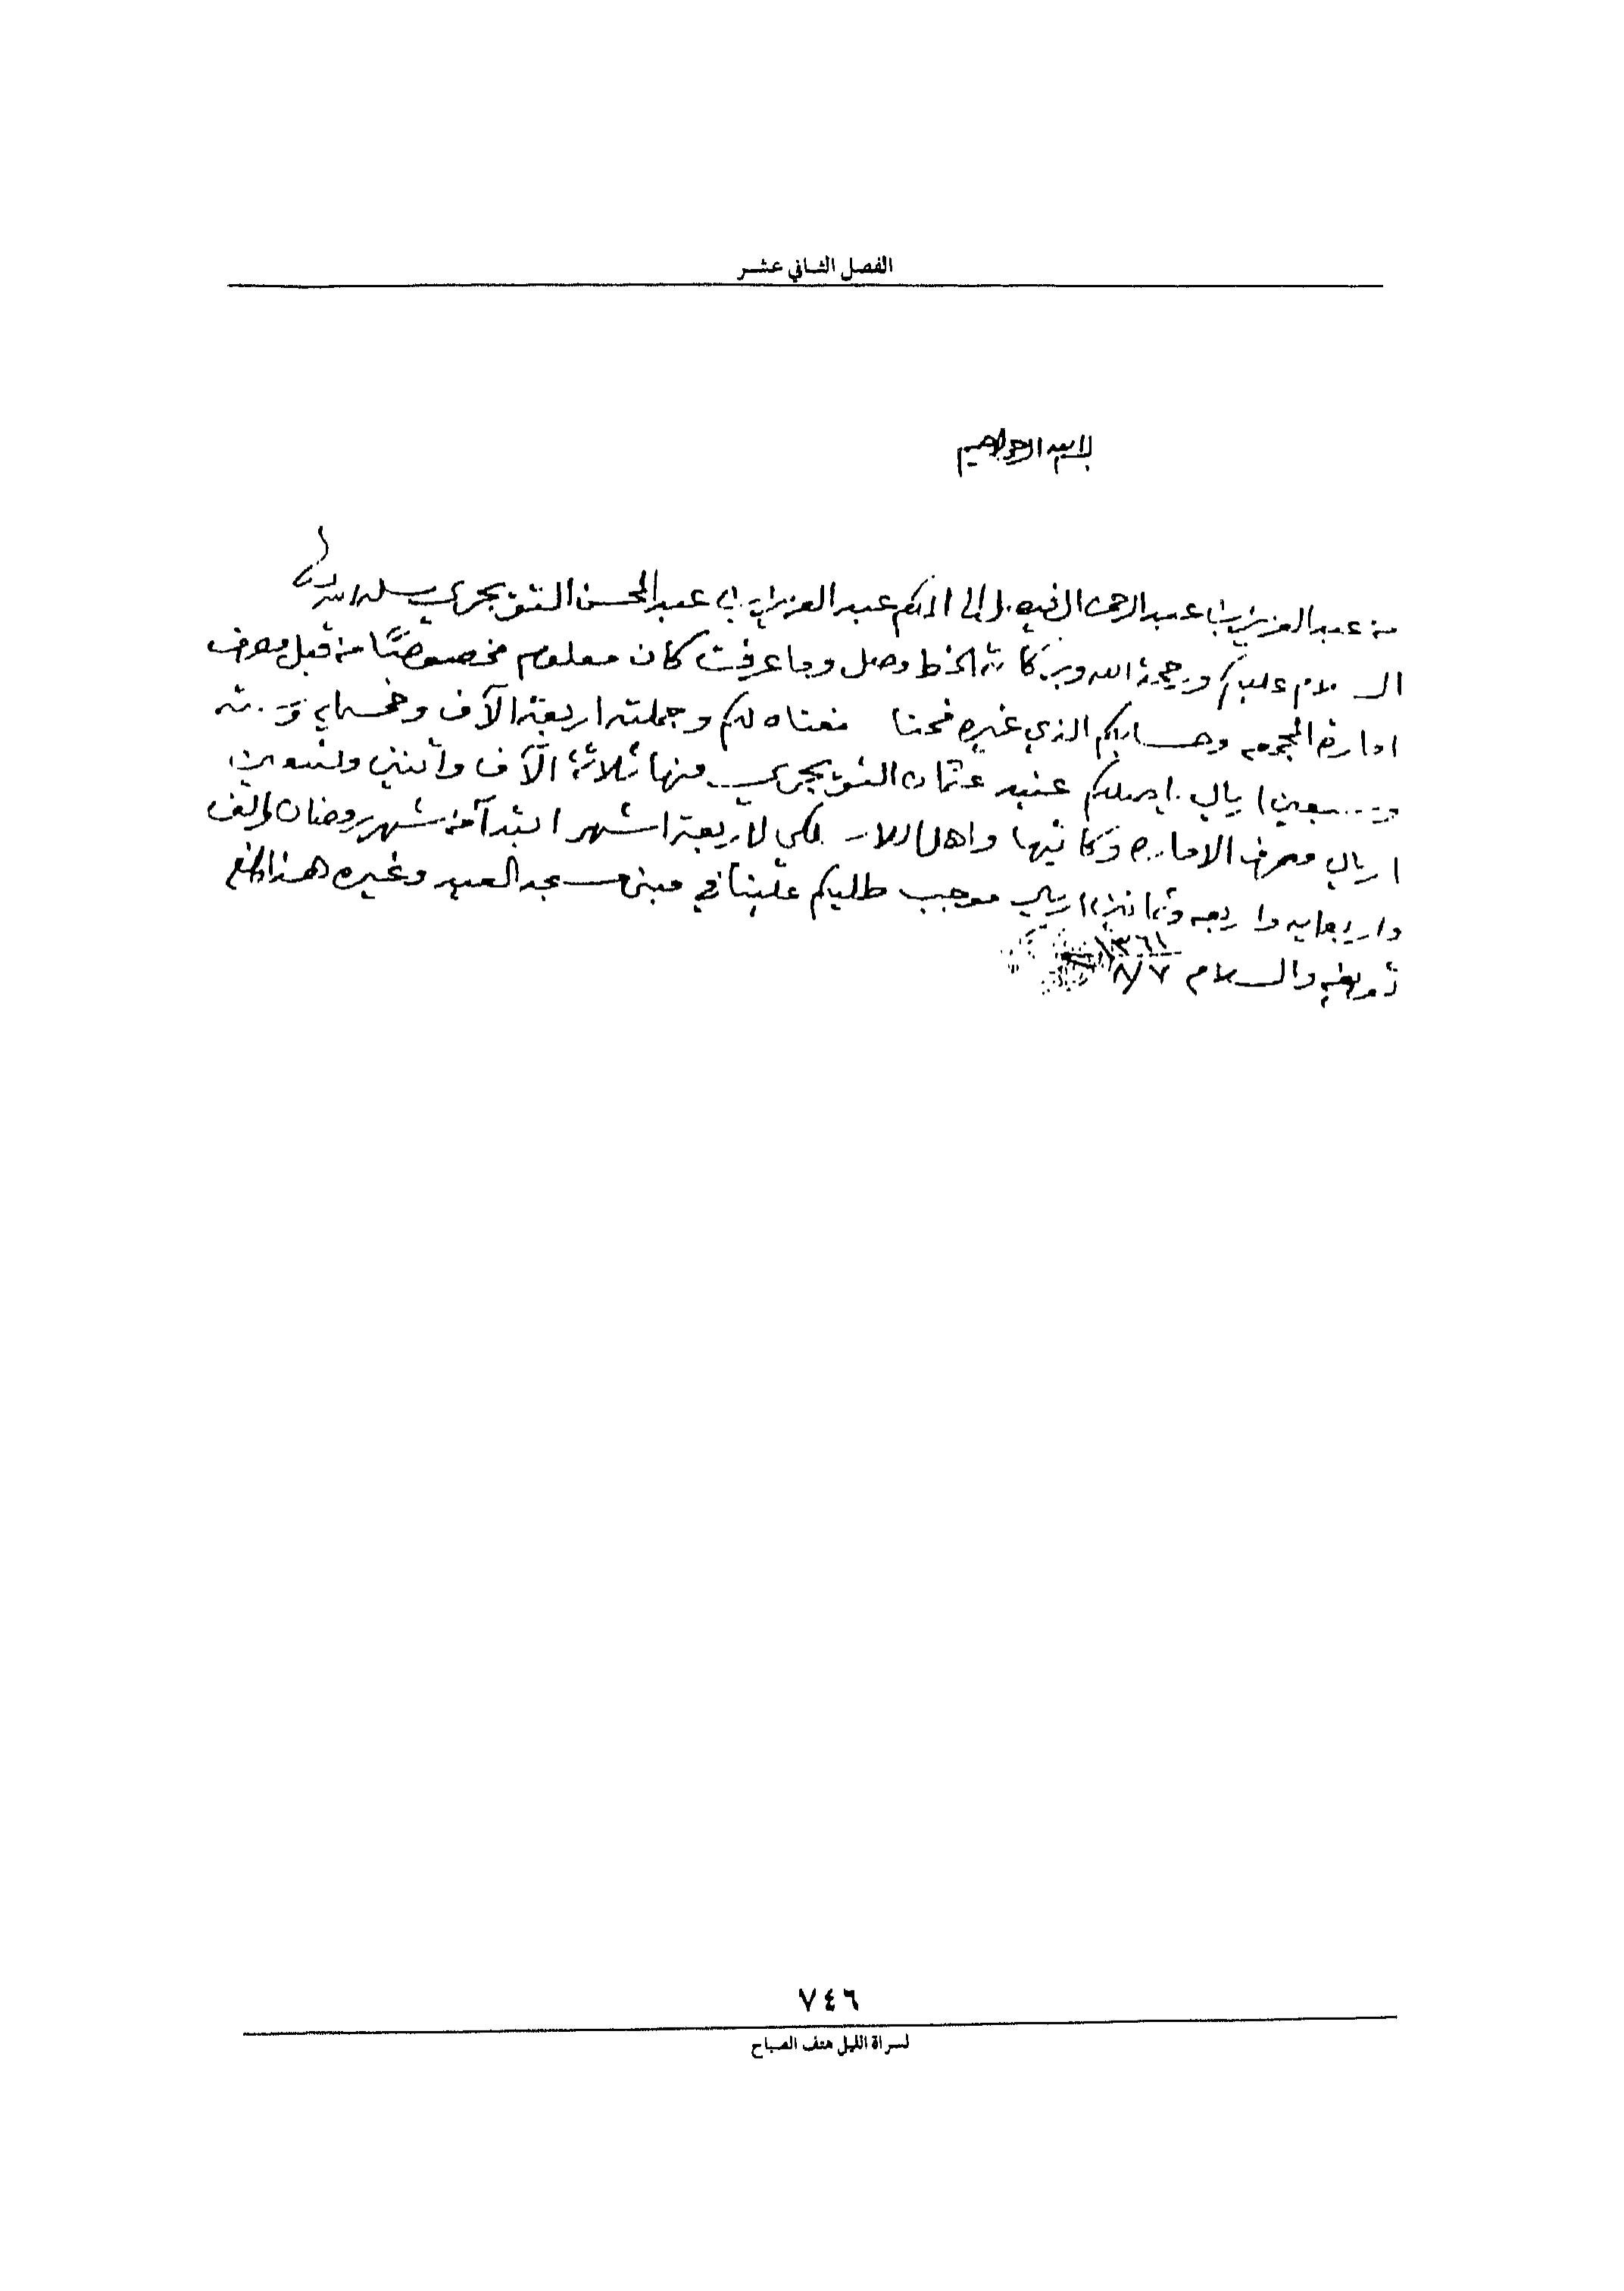 الفصل الثاني عشر
بسم الله الرحمن الرحيم
من عبد العزيز بن عبد الرحمن الفيصل إلى المكرم عبد العزيز بن عبد المحسن التويجري سلمه الله
السلام عليكم ورحمة الله وبركاته الخط وصل وما عرفت كان معلوم مخصوصًا من قبل مصرف
ادارة المجمعه وحسابكم الذي غيره فحنا دفعناه لكم وجملته اربعة الآف وخمسمايه وسته
وسبعين ريال يصلكم عند عثمان التويجري منها ثلاثة الآف واثنين وتسعين
ريال مصرف الاماره وكاتبها لاربعة اشهر ابتدآ من شهر رمضان والف
واربعمايه واربعه وثمانين ريال موجب طلبكم علينا في مبنى مسجد العيد وغيره هذا مالزم
تعريفه والسلام ٨/٧ ١٣٦١
٧٤٦
لسراة الليل هتف الصباح